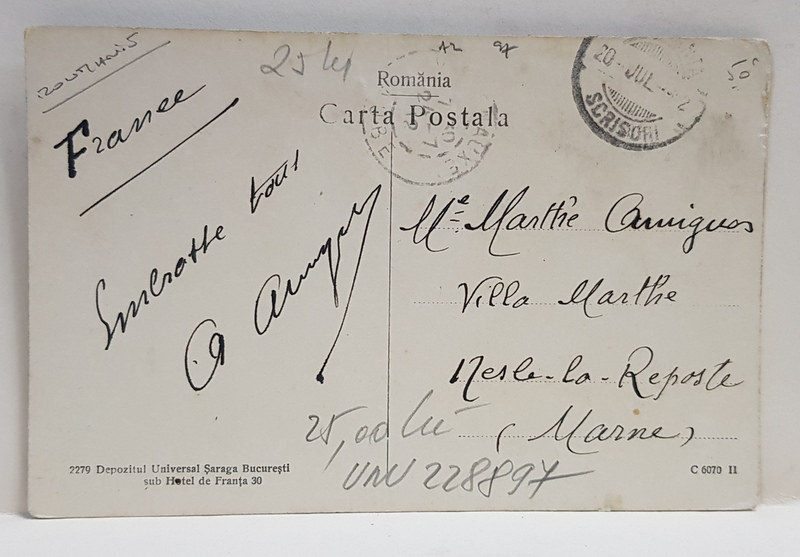 25 lei
România
Carta Postala
20 JUL
SCRISORI
France
Embrasse tous
Mᵉ Marthe Amiguos
Villa Marthe
Nesle-la-Reposte
(Marne)
25,00 lei
UNU 228897
2279 Depozitul Universal Șaraga București
sub Hotel de Franța 30
C 6070 II